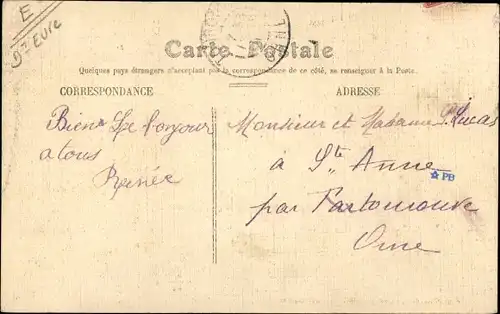 E
Dt Eure
Carte Postale
Quelques pays étrangers n'acceptant pas la correspondance de ce côté, se renseigner à la Poste.
CORRESPONDANCE
ADRESSE
Bien le bonjour
a tous
Renée
Monsieur et Madame Lucas
à Ste Anne
PB
par
Orne